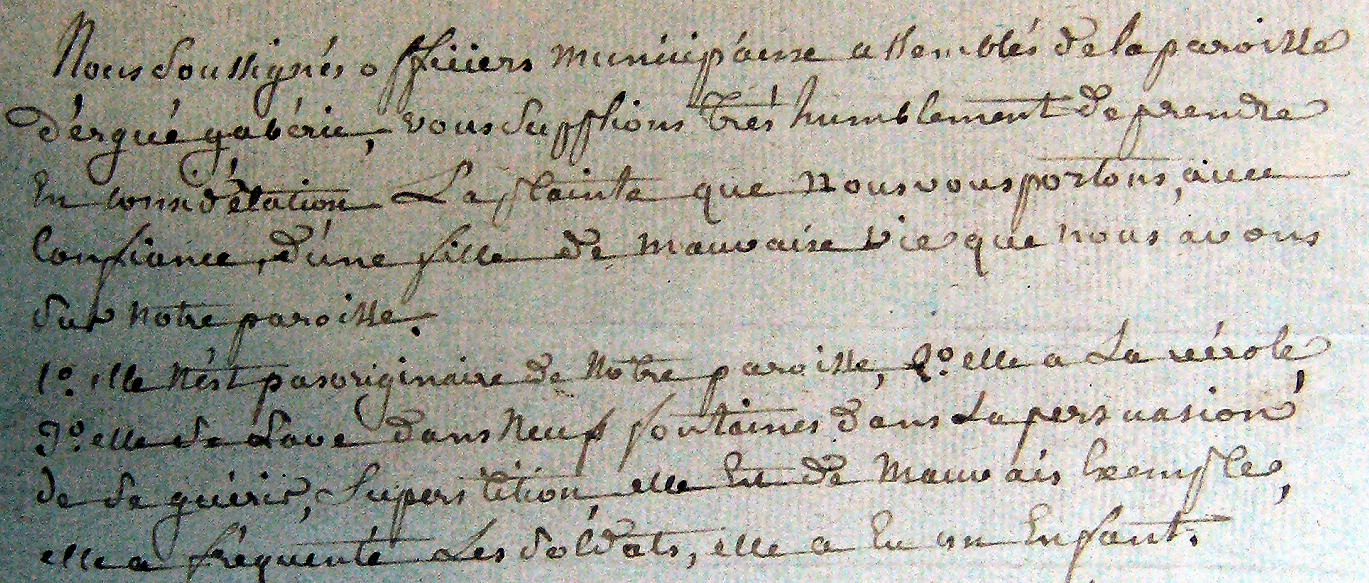 Nous soussignés officiers municipaux assemblés de la paroisse
d'ergué gabéric, vous supplions trés humblement de prendre
En considération La plainte que nous vous portons, avec
confiance, d'une fille de mauvaise vie que nous avons
sur notre paroisse.
1º. elle n'est pas originaire de Notre paroisse, 2º. elle a La vérole,
3º. elle se Lave dans Neuf fontaines dans La persuasion
de se guérir, superstition, elle Est de Mauvais Exemple,
elle a fréquenté Les soldats, elle a Eu un Enfant.